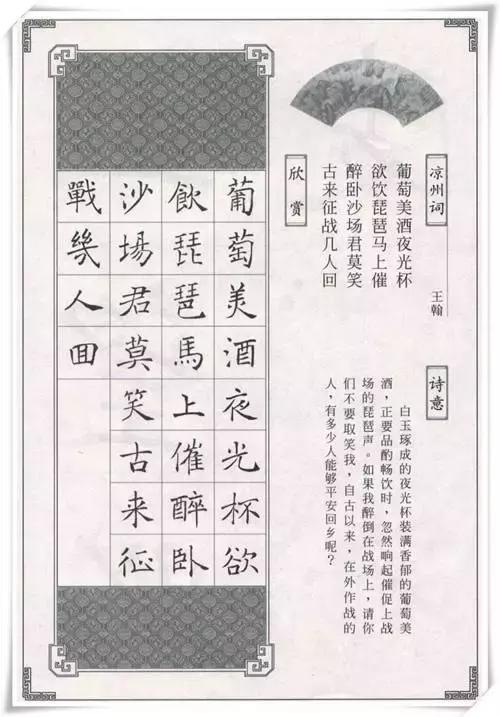 凉州词
王翰
葡萄美酒夜光杯
欲饮琵琶马上催
醉卧沙场君莫笑
古来征战几人回
诗意
白玉琢成的夜光杯装满香郁的葡萄美
酒，正要品酌畅饮时，忽然响起催促上战
场的琵琶声。如果我醉倒在战场上，请你
们不要取笑我，自古以来，在外作战的
人，有多少人能够平安回乡呢？
欣赏
葡萄美酒夜光杯欲
飲琵琶馬上催醉卧
沙場君莫笑古来征
戰幾人回